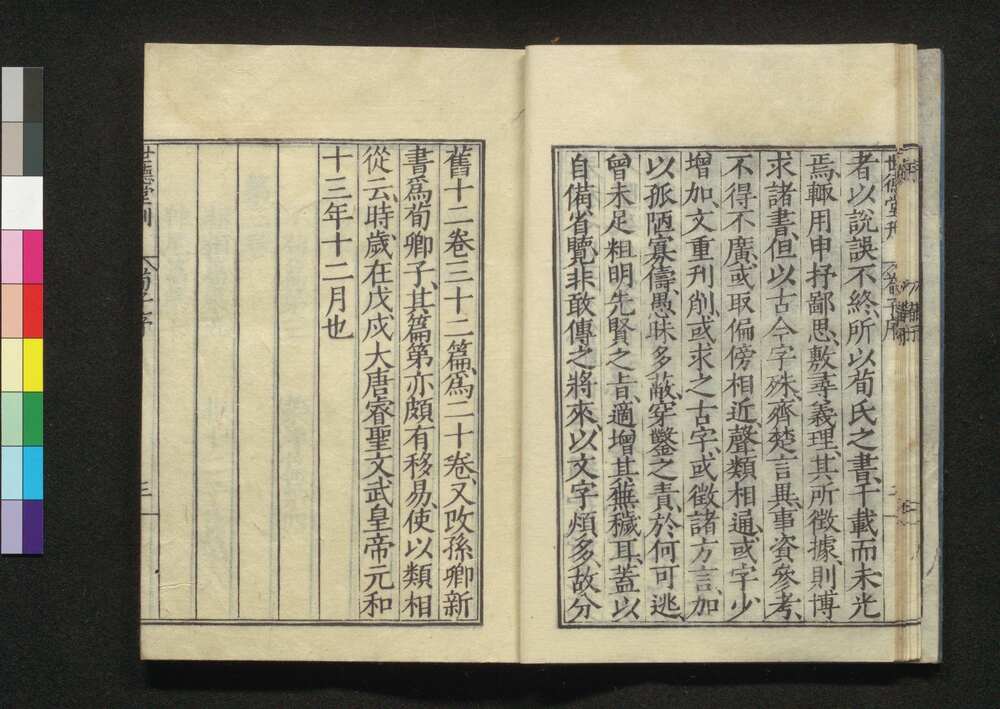 者以說誤不終、所以荀氏之書、千載而未光
焉、輒用申抒鄙思、敷尋義理、其所徵據、則博
求諸書、但以古今字殊、齊楚言異、事資參考、
不得不廣、或取偏傍相近、聲類相通、或字少
增加、文重刊削、或求之古字、或徵諸方言、加
以孤陋寡儔、愚昧多蔽、穿鑿之責、於何可逃、
曾未足粗明先賢之旨、適增其蕪穢耳、蓋以
自備省覽、非敢傳之將來、以文字煩多、故分
舊十二卷三十二篇、爲二十卷、又改孫卿新
書爲荀卿子、其篇第亦頗有移易、使以類相
從云、時歲在戊戌大唐睿聖文武皇帝元和
十三年十二月也
世德堂刊
荀子序
三
世德堂刊
荀子序